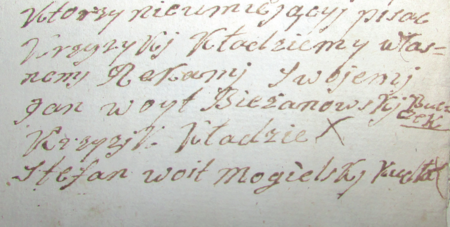 Ktorzy nieumiejącyj pisac
Krzyzykj Kładziemy włas=
nemj Rękamj Swojemj
Jan woyt Bieżanowskj
Krzyżik Kładzie X
Stefan woit Mogielskj